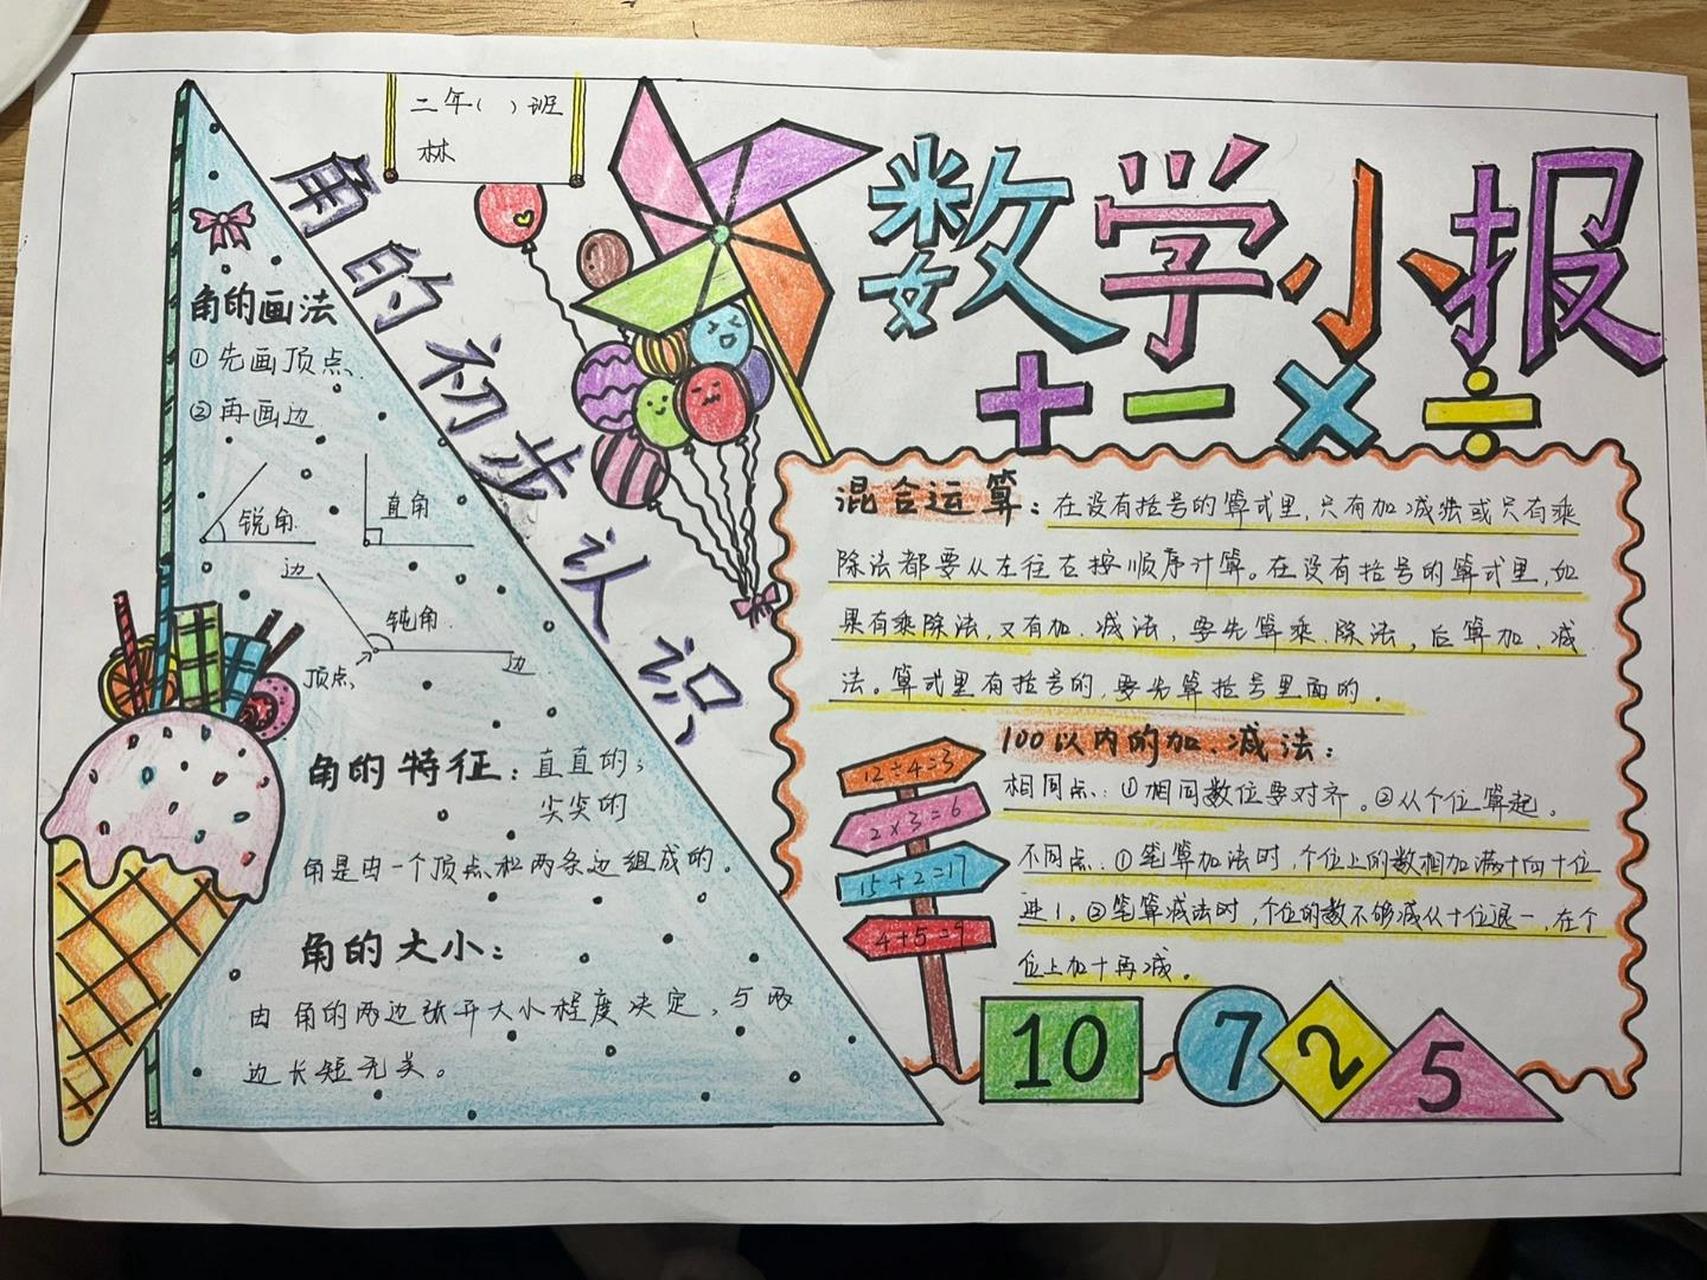 二年( )班
林
数学小报
+ - × ÷
角的初步认识
角的画法
①先画顶点
②再画边
锐角
直角
边
钝角
顶点
边
角的特征：直直的；
尖尖的
角是由一个顶点和两条边组成的。
角的大小：
由角的两边张开大小程度决定，与两
边长短无关。
混合运算：在没有括号的算式里，只有加减法或只有乘
除法都要从左往右按顺序计算。在没有括号的算式里，如
果有乘除法，又有加、减法，要先算乘、除法，后算加、减
法。算式里有括号的，要先算括号里面的。
100以内的加、减法：
相同点：①相同数位要对齐。②从个位算起。
不同点：①笔算加法时，个位上的数相加满十向十位
进1。②笔算减法时，个位的数不够减从十位退一，在个
位上加十再减。
12÷4=3
2×3=6
15+2=17
4+5=9
10
7
2
5